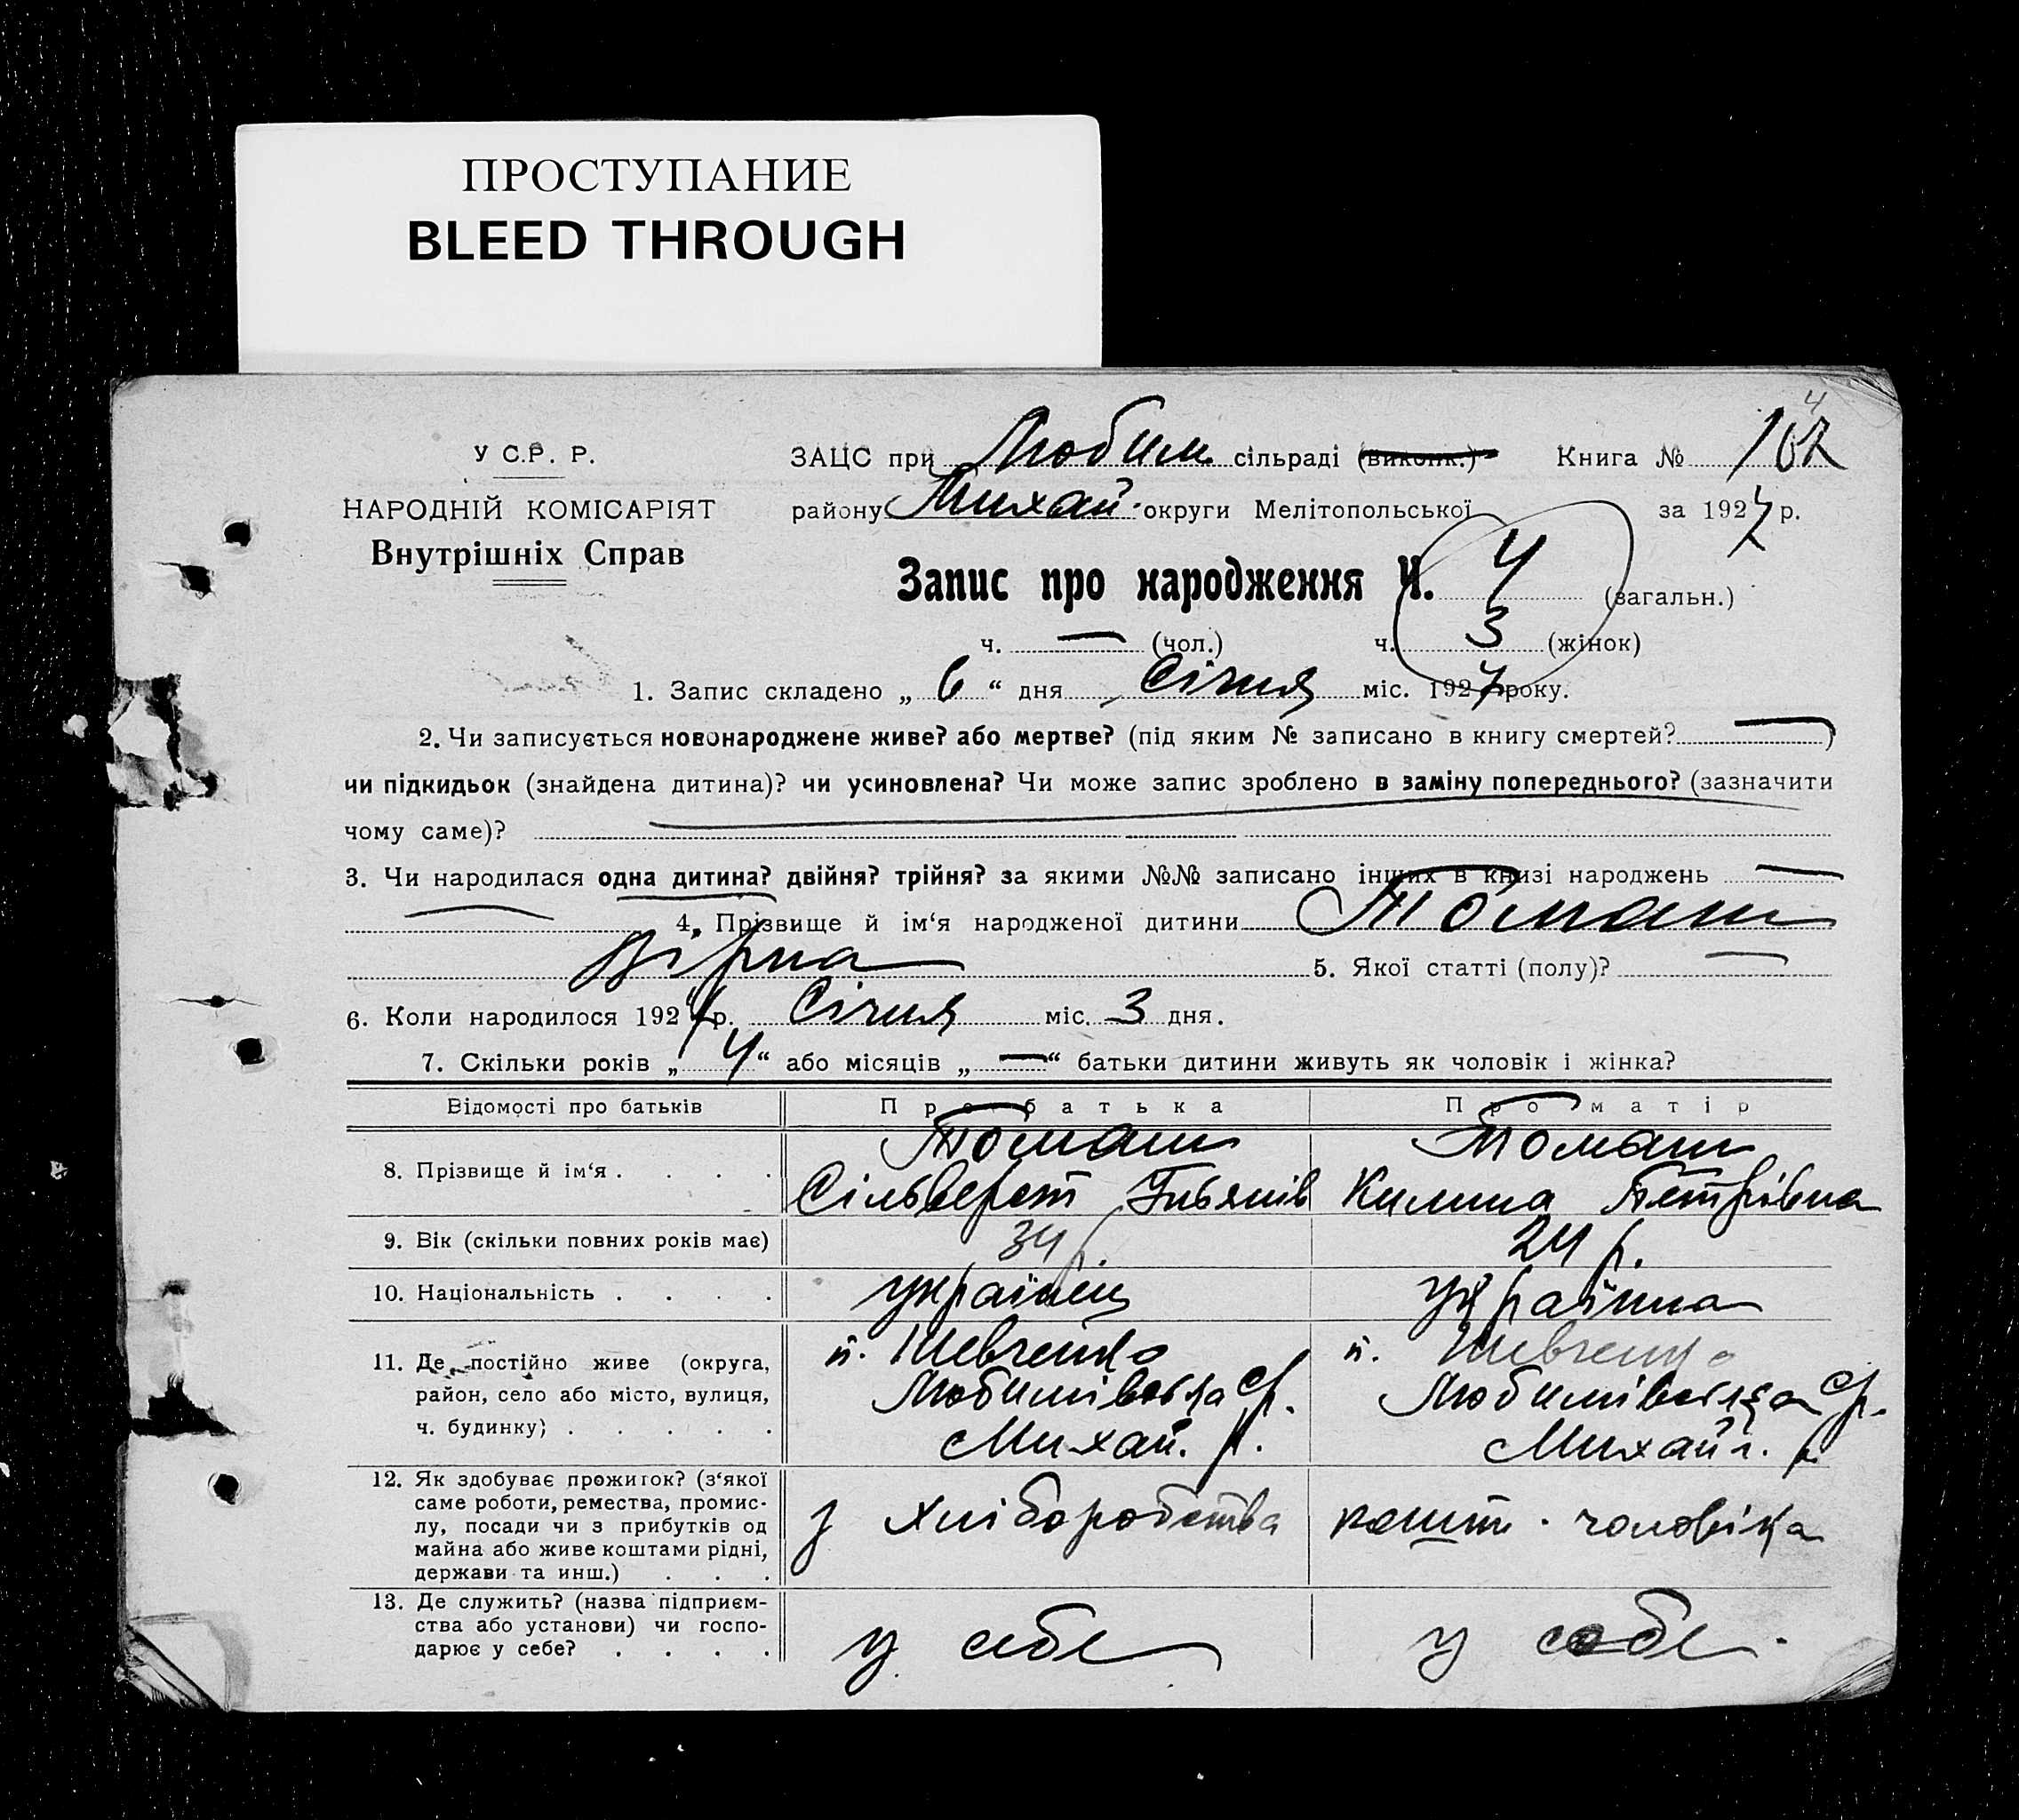 ПРОСТУПАНИЕ
BLEED THROUGH
4
У С.Р. Р.
ЗАЦС при Любим. сільраді (виконк.) Книга № 107
НАРОДНІЙ КОМІСАРІЯТ
району Михай. округи Мелітопольської за 1927 р.
Внутрішніх Справ
Запис про народження Ч. 4 (загальн.)
ч. — (чол.) ч. 3 (жінок)
1. Запис складено „ 6 “ дня Січня міс. 1927 року.
2. Чи записується новонароджене живе? або мертве? (під яким № записано в книгу смертей? —)
чи підкидьок (знайдена дитина)? чи усиновлена? Чи може запис зроблено в заміну попереднього? (зазначити
чому саме)?
3. Чи народилася одна дитина? двійня? трійня? за якими №№ записано інших в книзі народжень —
— 4. Прізвище й ім‘я народженої дитини Томаш
Вірна 5. Якої статті (полу)? —
6. Коли народилося 1927 р. Січня міс. 3 дня.
7. Скільки років „ 4 “ або місяців „ — “ батьки дитини живуть як чоловік і жінка?
Відомості про батьків Про батька Про матір
8. Прізвище й ім‘я . . . . Томаш Томаш
Сільверст Килина Петрівна
9. Вік (скільки повних років має) 34 р. 24 р.
10. Національність . . . . українец українка
11. Де постійно живе (округа, п. Шевченко п. Шевченко
район, село або місто, вулиця, Любимівська ср. Любимівська ср.
ч. будинку) . . . . . Михай. р. Михайл. р.
12. Як здобуває прожиток? (з‘якої
саме роботи, ремества, промис-
лу, посади чи з прибутків од з хліборобства кошт. чоловіка
майна або живе коштами рідні,
держави та инш.) . . .
13. Де служить? (назва підприєм-
ства або установи) чи госпо- у себе у себе.
дарює у себе? . . . .